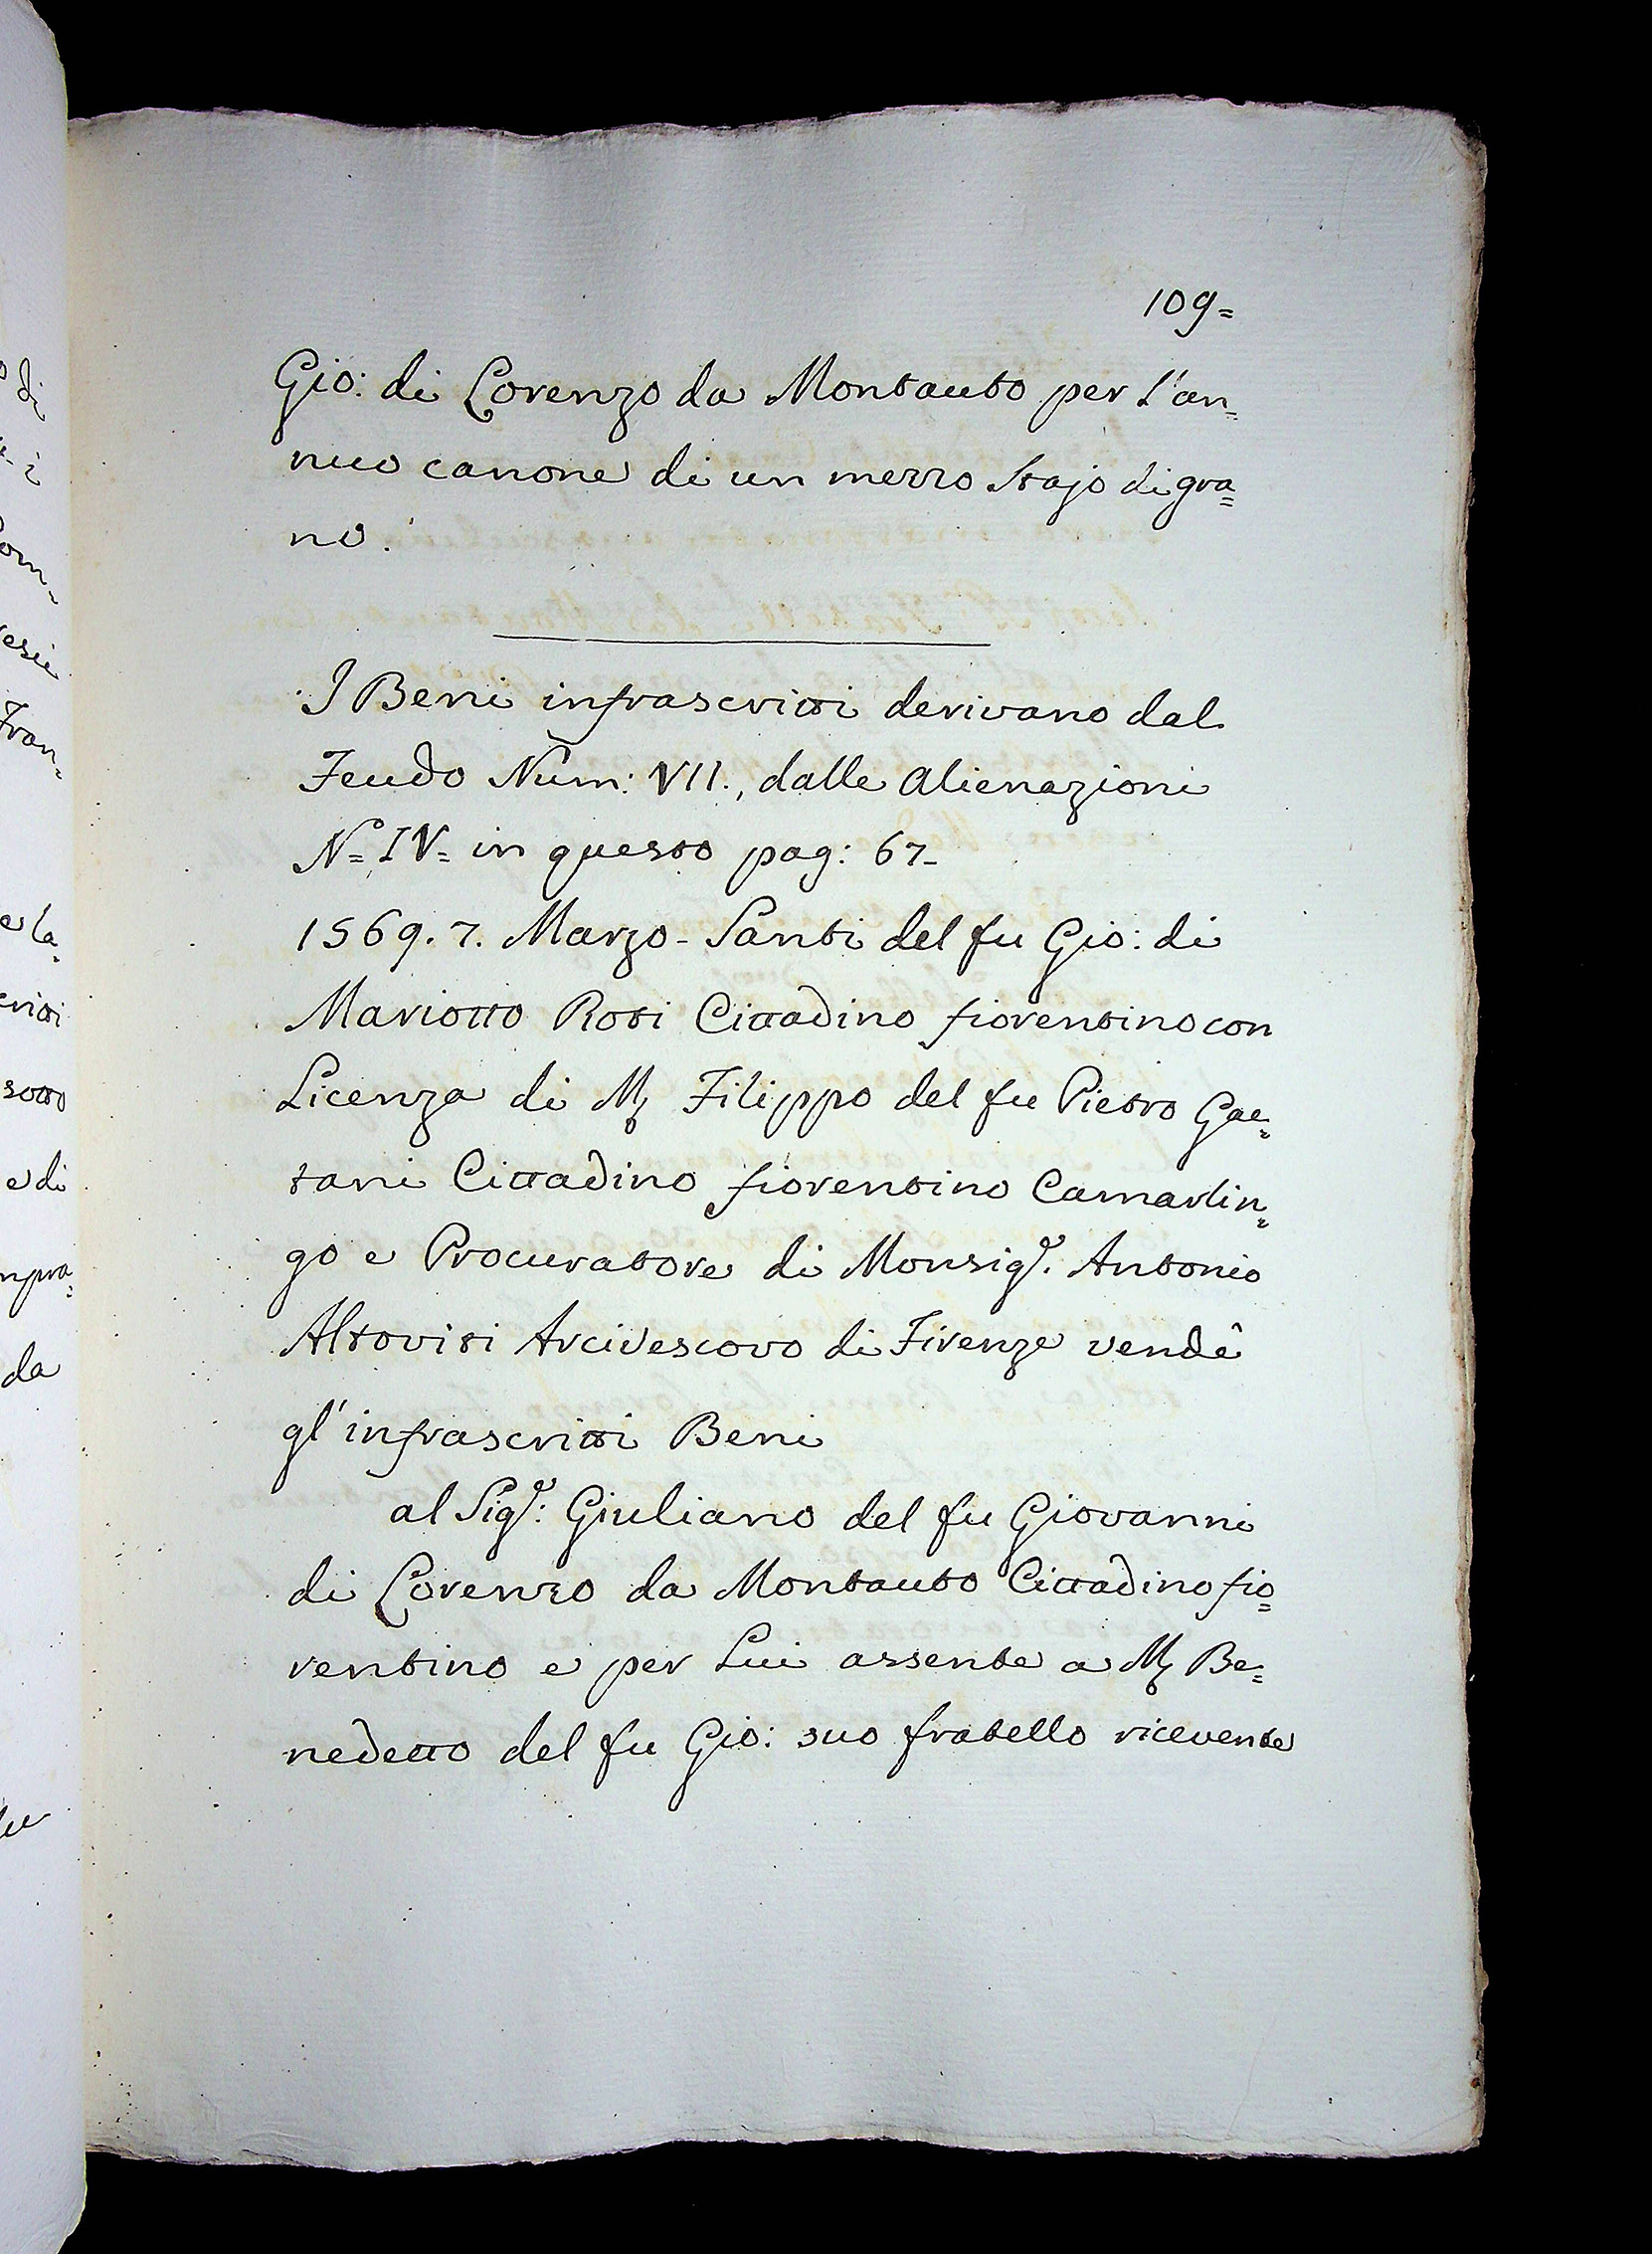 109=
Gio: di Lorenzo da Montauto per l'an=
nuo canone di un mezzo Stajo di gra=
no.
I Beni infrascritti derivano dal
Feudo Num: VII., dalle alienazioni
N= IV= in questo pag: 67-
1569. 7. Marzo - Santi del fu Gio: di
Mariotto Roti Cittadino fiorentino con
Licenza di Mr Filippo del fu Pietro Gae=
tani Cittadino fiorentino Camarlin=
go e Procuratore di Monsigr. Antonio
Altoviti Arcivescovo di Firenze vendè
gl'infrascritti Beni
al Sigr: Giuliano del fu Giovanni
di Lorenzo da Montauto Cittadino fio=
rentino e per Lui assente a Mr Be=
nedetto del fu Gio: suo fratello ricevente
di
i
om=
esii
Fran=
e la=
critti
sotto
e di
mpra=
da